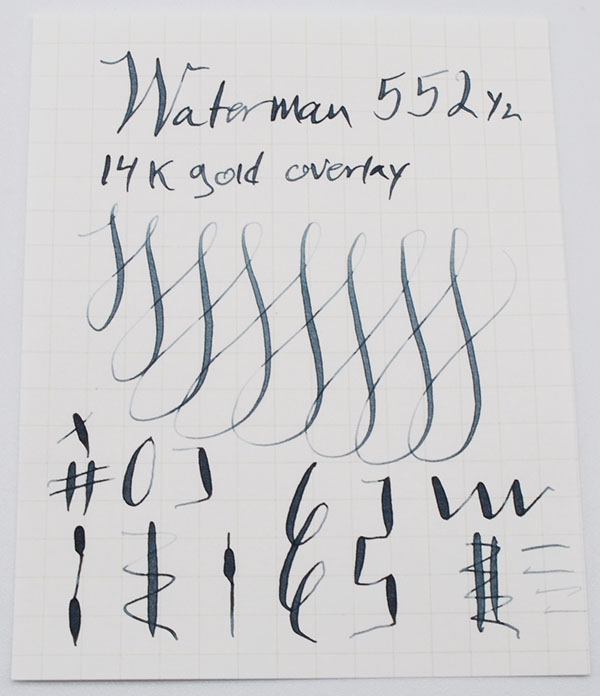 Waterman 552 ½
14K gold overlay